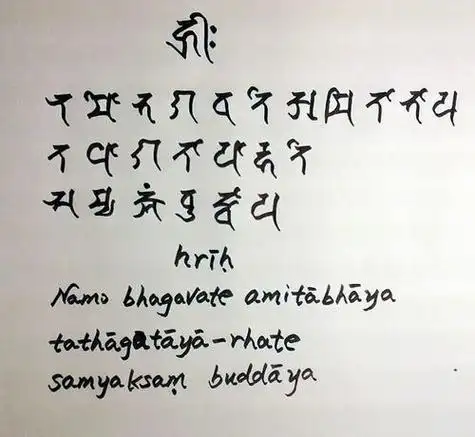 𑖮𑖿𑖨𑖱𑖾
𑖡 𑖦𑖺 𑖥 𑖐 𑖪 𑖝𑖸 𑖀 𑖦𑖰 𑖝𑖯 𑖥𑖯 𑖧
𑖝 𑖞𑖯 𑖐 𑖝𑖯 𑖧𑖯 𑖨𑖿𑖮 𑖝𑖸
𑖭 𑖦𑖿𑖧 𑖎𑖿𑖭𑖽 𑖤𑖲 𑖟𑖿𑖠𑖯 𑖧
hrīḥ
Namo bhagavate amitābhāya
tathāgatāyā-rhate
samyaksaṃ buddāya